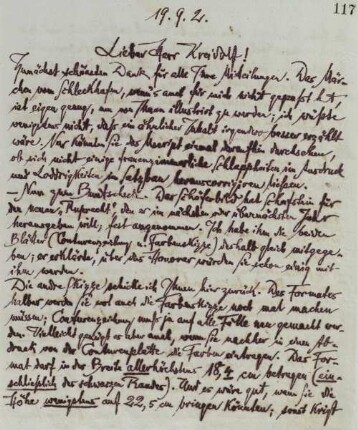 117
19.9.2.
Lieber Herr Kreidolf!
Zunächst schönsten Dank für alle Ihre Mitteilungen. Das Mär-
chen vom Schlehhafen, wenn's auch für mich nicht gepasst hat,
ist eigen genug, um von Ihnen illustriert zu werden; ich wüßte
wenigstens nicht, daß ein ähnlicher Inhalt irgendwo besser erzählt
wäre. Nur könnten Sie das Manuscript einmal daraufhin durchsehen,
ob sich nicht einige frauenzimmerliche Schlappheiten im Ausdruck
und Loddrigkeiten im Satzbau herauscorrigiren ließen.
— Nun zum Buntscheck. Das Schäferbild hat Schafstein für
den neuen "Knecht Ruprecht", den er im nächsten oder übernächsten Jahr
herausgeben will, fest angenommen. Ich habe ihm die beiden
Blätter (Conturenzeichnung u. Farbenskizze) deshalb gleich mitgege-
ben; er erklärte, über das Honorar würden Sie schon einig mit-
ihm werden.
Die andre Skizze schicke ich Ihnen hier zurück. Des Formates
halber werden Sie wol auch die Farbenskizze noch mal machen
müssen; Conturenzeichnung muß ja auf alle Fälle neu gemacht wer-
den. Vielleicht genügt es aber auch, wenn Sie nachher in einen Ab-
druck von der Conturenplatte die Farben eintragen. Das For-
mat darf in der Breite allerhöchstens 18,4 cm betragen (ein-
schließlich des schwarzen Randes). Und es wäre gut, wenn Sie die
Höhe wenigstens auf 22,5 cm bringen könnten; sonst kriegt